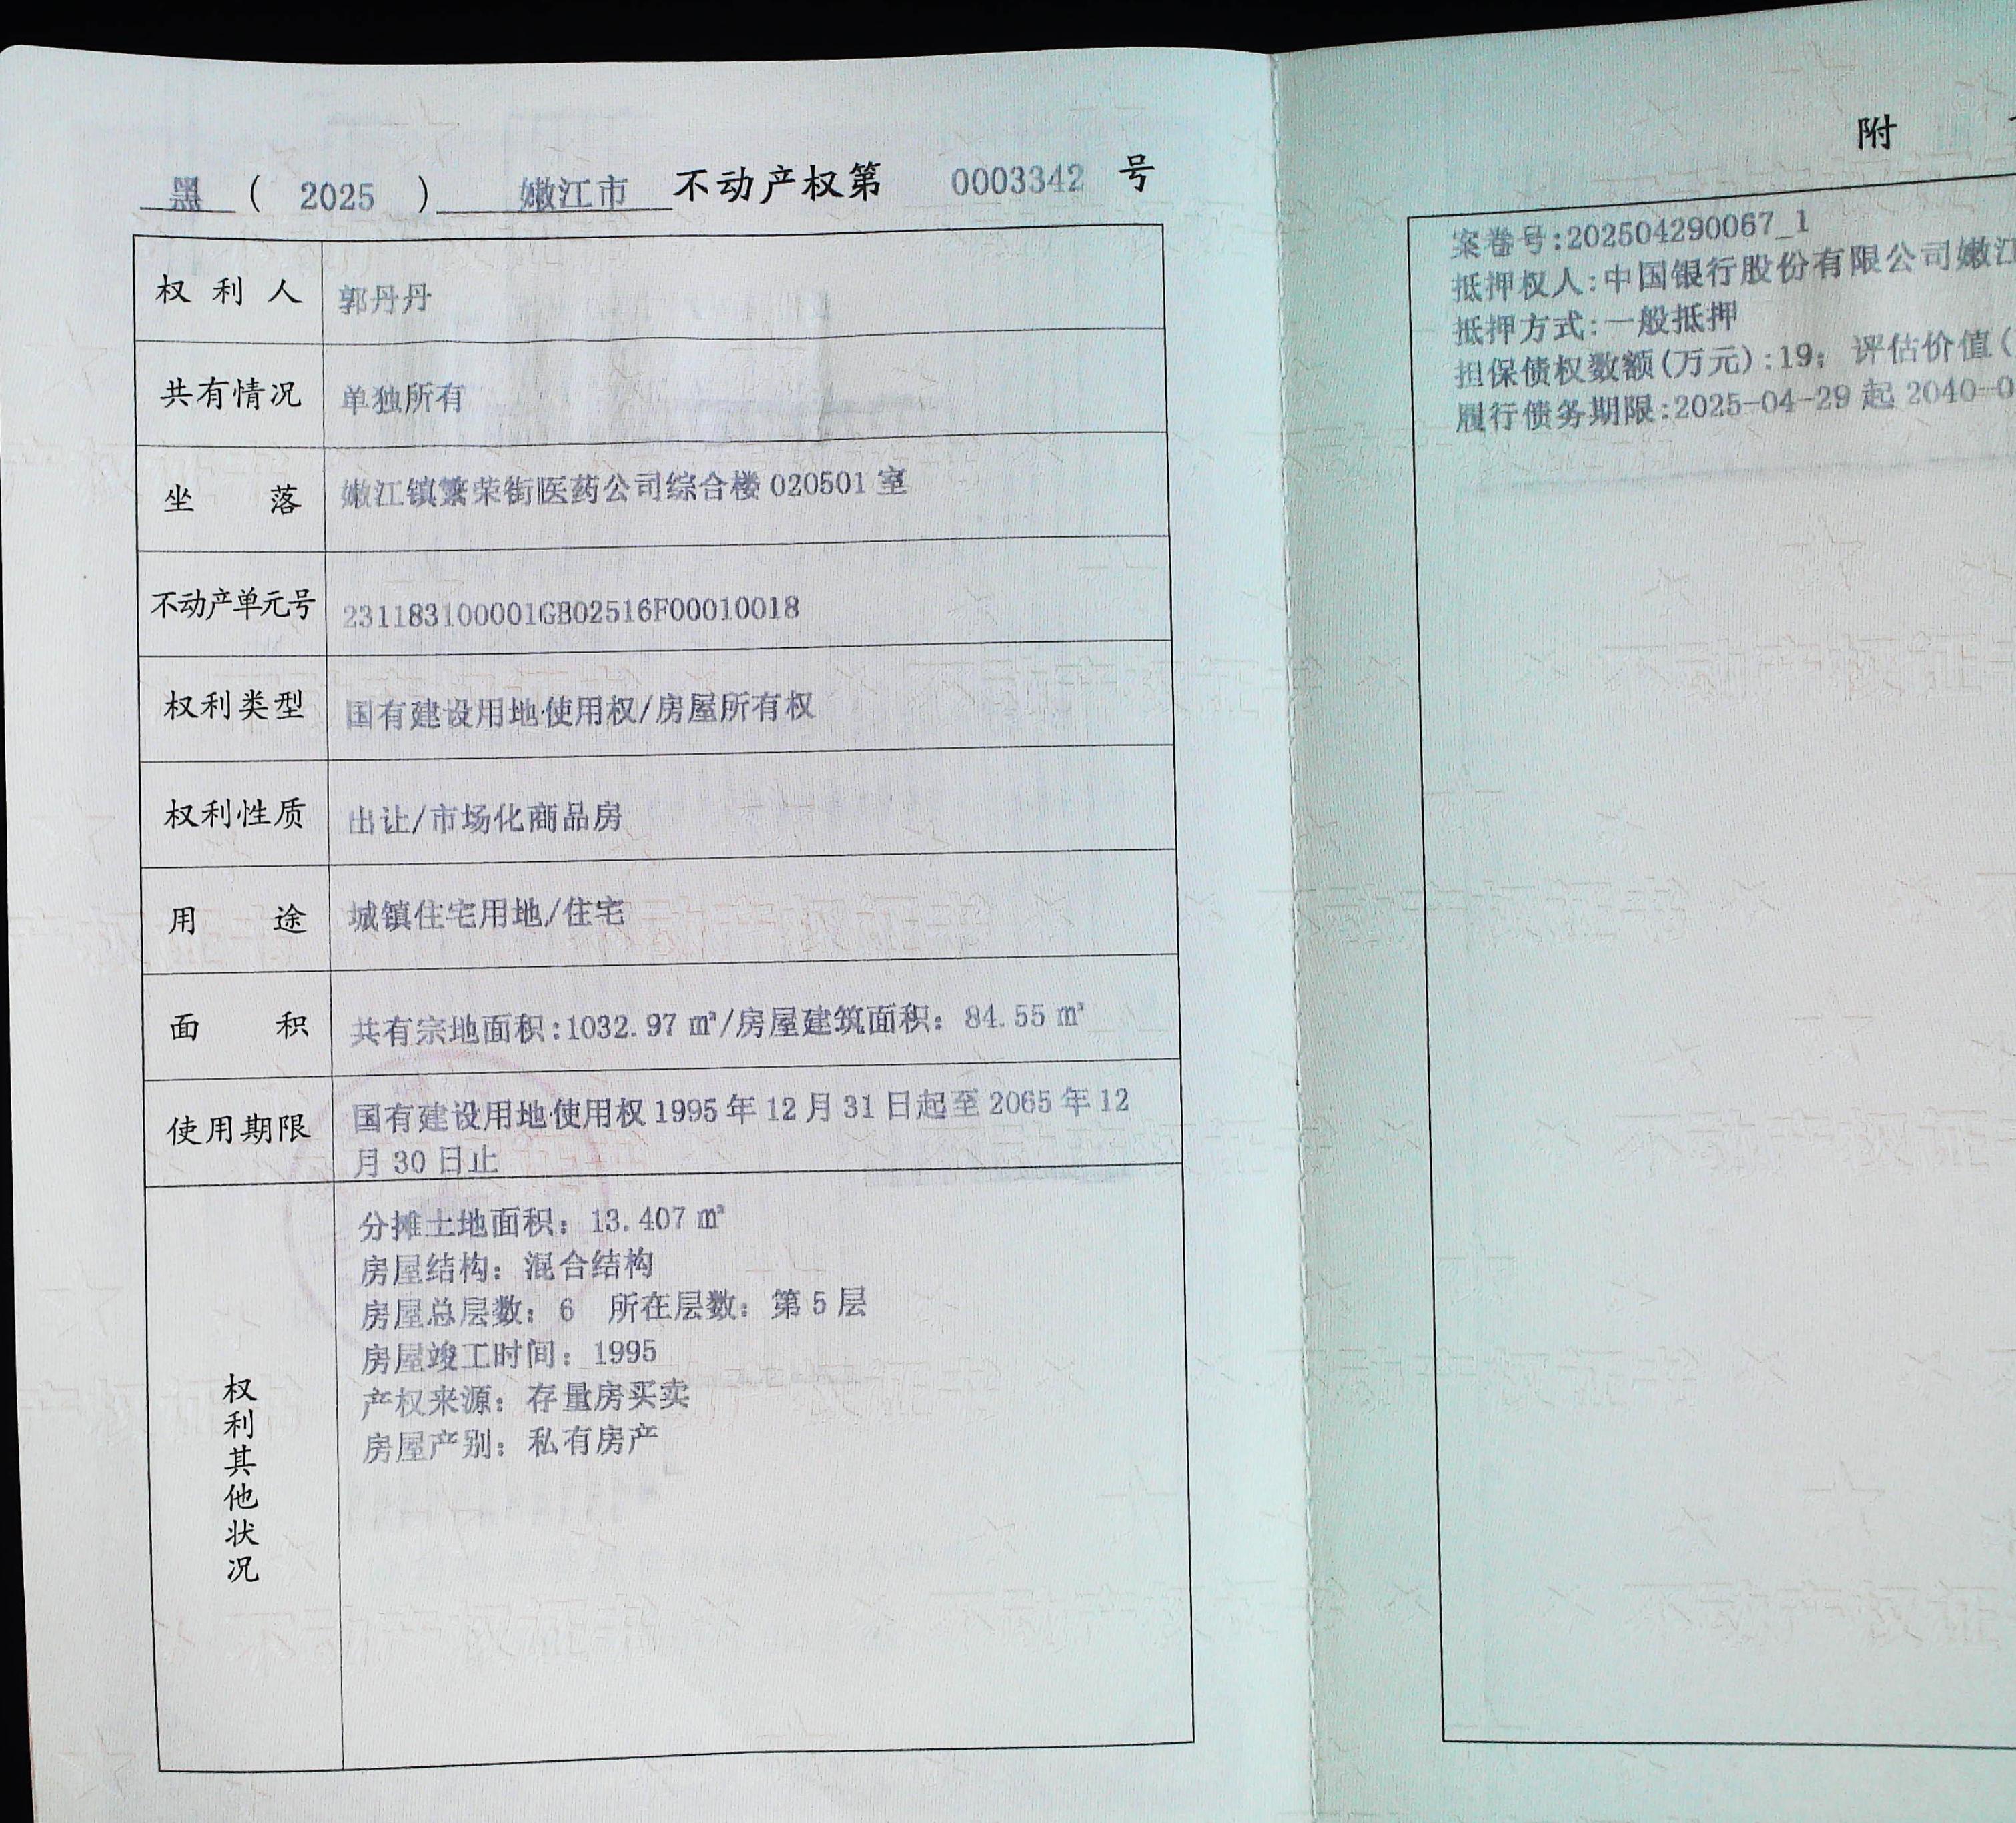 黑 ( 2025 ) 嫩江市 不动产权第 0003342 号
权利人 郭丹丹
共有情况 单独所有
坐落 嫩江镇繁荣街医药公司综合楼 020501 室
不动产单元号 231183100001GB02516F00010018
权利类型 国有建设用地使用权/房屋所有权
权利性质 出让/市场化商品房
用途 城镇住宅用地/住宅
面积 共有宗地面积:1032.97 ㎡/房屋建筑面积: 84.55 ㎡
使用期限 国有建设用地使用权 1995 年 12 月 31 日起至 2065 年 12
月 30 日止
权利其他状况
分摊土地面积: 13.407 ㎡
房屋结构: 混合结构
房屋总层数: 6 所在层数: 第 5 层
房屋竣工时间: 1995
产权来源: 存量房买卖
房屋产别: 私有房产
附
案卷号:202504290067_1
抵押权人:中国银行股份有限公司嫩江
抵押方式:一般抵押
担保债权数额(万元):19; 评估价值(
履行债务期限:2025-04-29 起 2040-0